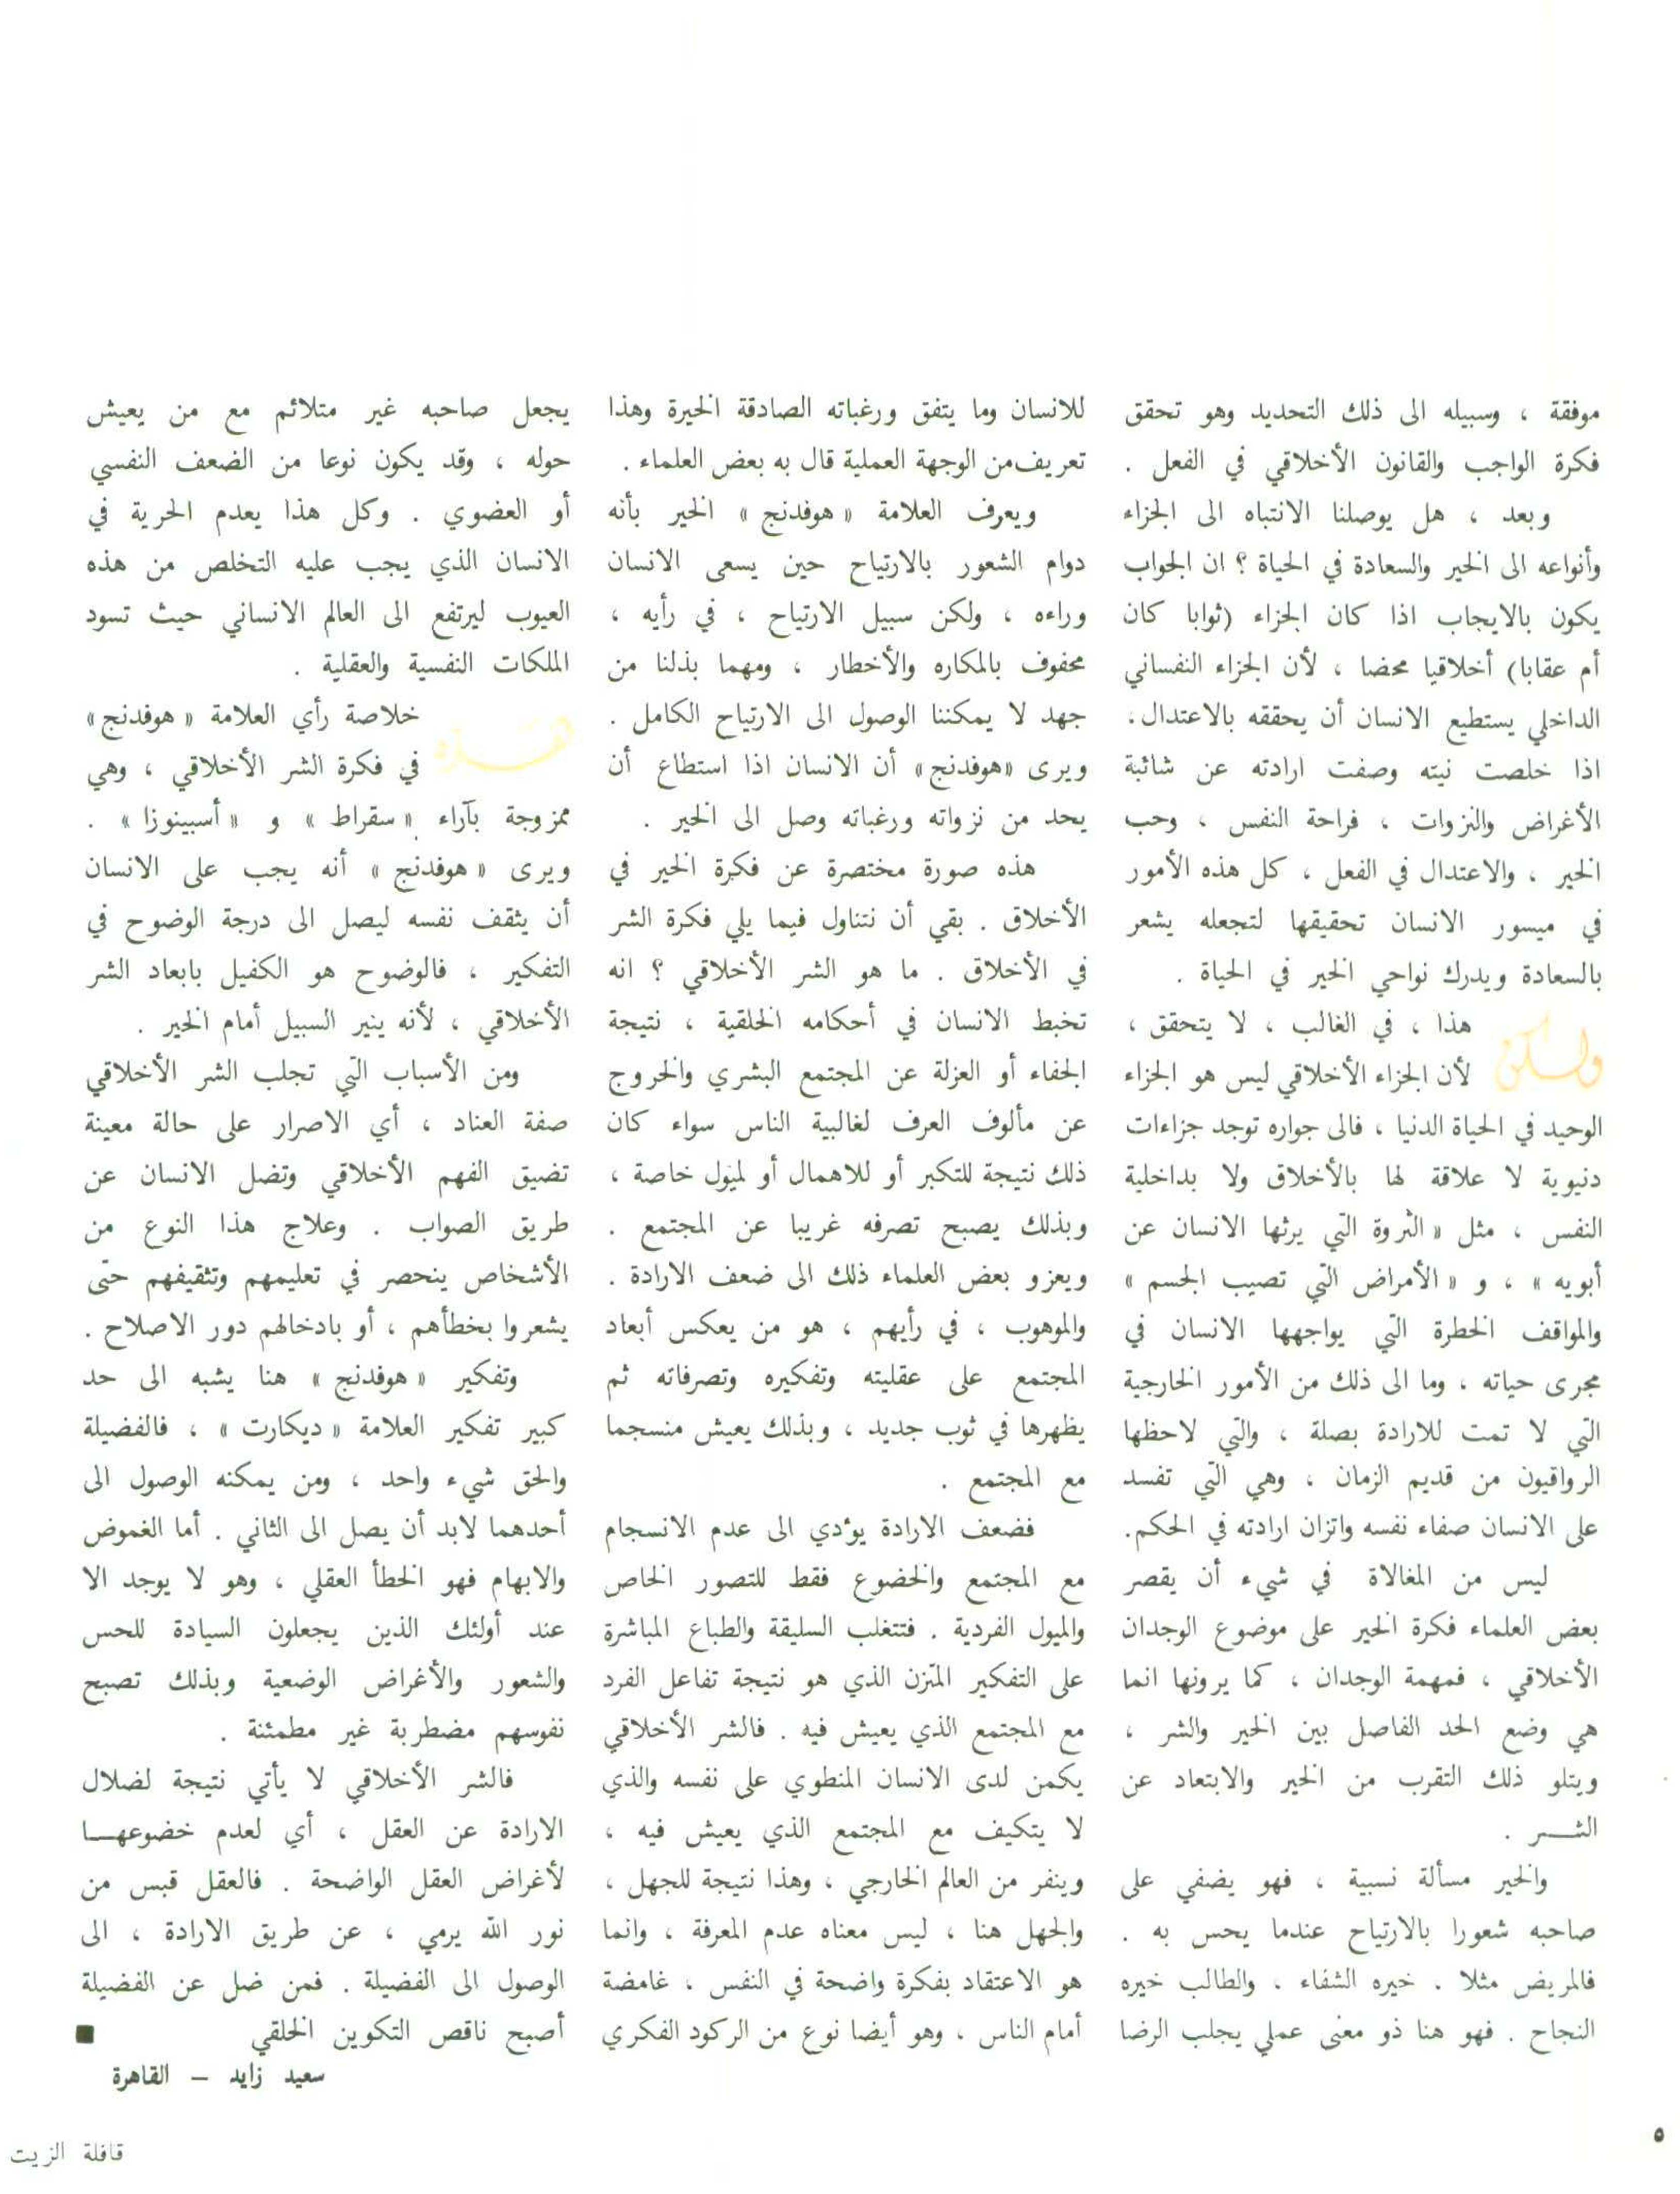 موفقة ، وسبيله الى ذلك التحديد وهو تحقق
فكرة الواجب والقانون الأخلاقي في الفعل .
وبعد ، هل يوصلنا الانتباه الى الجزاء
وأنواعه الى الخير والسعادة في الحياة ؟ ان الجواب
يكون بالايجاب اذا كان الجزاء (ثوابا كان
أم عقابا) أخلاقيا محضا ، لأن الجزاء النفساني
الداخلي يستطيع الانسان أن يحققه بالاعتدال ،
اذا خلصت نيته وصفت ارادته عن شائبة
الأغراض والنزوات ، فراحة النفس ، وحب
الخير ، والاعتدال في الفعل ، كل هذه الأمور
في ميسور الانسان تحقيقها لتجعله يشعر
بالسعادة ويدرك نواحي الخير في الحياة .
ولكن هذا ، في الغالب ، لا يتحقق ،
لأن الجزاء الأخلاقي ليس هو الجزاء
الوحيد في الحياة الدنيا ، فالى جواره توجد جزاءات
دنيوية لا علاقة لها بالأخلاق ولا بداخلية
النفس ، مثل « الثروة التي يرثها الانسان عن
أبويه » ، و « الأمراض التي تصيب الجسم »
والمواقف الخطرة التي يواجهها الانسان في
مجرى حياته ، وما الى ذلك من الأمور الخارجية
التي لا تمت للارادة بصلة ، والتي لاحظها
الرواقيون من قديم الزمان ، وهي التي تفسد
على الانسان صفاء نفسه واتزان ارادته في الحكم.
ليس من المغالاة في شيء أن يقصر
بعض العلماء فكرة الخير على موضوع الوجدان
الأخلاقي ، فمهمة الوجدان ، كما يرونها انما
هي وضع الحد الفاصل بين الخير والشر ،
ويتلو ذلك التقرب من الخير والابتعاد عن
الشـــر .
والخير مسألة نسبية ، فهو يضفي على
صاحبه شعورا بالارتياح عندما يحس به .
فالمريض مثلا . خيره الشفاء ، والطالب خيره
النجاح . فهو هنا ذو معنى عملي يجلب الرضا
للانسان وما يتفق ورغباته الصادقة الخيرة وهذا
تعريف من الوجهة العملية قال به بعض العلماء .
ويعرف العلامة « هوفدنج » الخير بأنه
دوام الشعور بالارتياح حين يسعى الانسان
وراءه ، ولكن سبيل الارتياح ، في رأيه ،
محفوف بالمكاره والأخطار ، ومهما بذلنا من
جهد لا يمكننا الوصول الى الارتياح الكامل .
ويرى «هوفدنج» أن الانسان اذا استطاع أن
يحد من نزواته ورغباته وصل الى الخير .
هذه صورة مختصرة عن فكرة الخير في
الأخلاق . بقي أن نتناول فيما يلي فكرة الشر
في الأخلاق . ما هو الشر الأخلاقي ؟ انه
تخبط الانسان في أحكامه الخلقية ، نتيجة
الجفاء أو العزلة عن المجتمع البشري والخروج
عن مألوف العرف لغالبية الناس سواء كان
ذلك نتيجة للتكبر أو للاهمال أو لميول خاصة ،
وبذلك يصبح تصرفه غريبا عن المجتمع .
ويعزو بعض العلماء ذلك الى ضعف الارادة .
والموهوب ، في رأيهم ، هو من يعكس أبعاد
المجتمع على عقليته وتفكيره وتصرفاته ثم
يظهرها في ثوب جديد ، وبذلك يعيش منسجما
مع المجتمع .
فضعف الارادة يؤدي الى عدم الانسجام
مع المجتمع والخضوع فقط للتصور الخاص
والميول الفردية . فتتغلب السليقة والطباع المباشرة
على التفكير المتزن الذي هو نتيجة تفاعل الفرد
مع المجتمع الذي يعيش فيه . فالشر الأخلاقي
يكمن لدى الانسان المنطوي على نفسه والذي
لا يتكيف مع المجتمع الذي يعيش فيه ،
وينفر من العالم الخارجي ، وهذا نتيجة للجهل ،
والجهل هنا ، ليس معناه عدم المعرفة ، وانما
هو الاعتقاد بفكرة واضحة في النفس ، غامضة
أمام الناس ، وهو أيضا نوع من الركود الفكري
يجعل صاحبه غير متلائم مع من يعيش
حوله ، وقد يكون نوعا من الضعف النفسي
أو العضوي . وكل هذا يعدم الحرية في
الانسان الذي يجب عليه التخلص من هذه
العيوب ليرتفع الى العالم الانساني حيث تسود
الملكات النفسية والعقلية .
خلاصة رأي العلامة « هوفدنج»
في فكرة الشر الأخلاقي ، وهي
ممزوجة بآراء « سقراط » و « أسبينوزا » .
ويرى « هوفدنج » أنه يجب على الانسان
أن يثقف نفسه ليصل الى درجة الوضوح في
التفكير ، فالوضوح هو الكفيل بابعاد الشر
الأخلاقي ، لأنه ينير السبيل أمام الخير .
ومن الأسباب التي تجلب الشر الأخلاقي
صفة العناد ، أي الاصرار على حالة معينة
تضيق الفهم الأخلاقي وتضل الانسان عن
طريق الصواب . وعلاج هذا النوع من
الأشخاص ينحصر في تعليمهم وتثقيفهم حتى
يشعروا بخطأهم ، أو بادخالهم دور الاصلاح .
وتفكير « هوفدنج » هنا يشبه الى حد
كبير تفكير العلامة « ديكارت » ، فالفضيلة
والحق شيء واحد ، ومن يمكنه الوصول الى
أحدهما لابد أن يصل الى الثاني . أما الغموض
والابهام فهو الخطأ العقلي ، وهو لا يوجد الا
عند أولئك الذين يجعلون السيادة للحس
والشعور والأغراض الوضعية وبذلك تصبح
نفوسهم مضطربة غير مطمئنة .
فالشر الأخلاقي لا يأتي نتيجة لضلال
الارادة عن العقل ، أي لعدم خضوعهـــا
لأغراض العقل الواضحة . فالعقل قبس من
نور الله يرمي ، عن طريق الارادة ، الى
الوصول الى الفضيلة . فمن ضل عن الفضيلة
أصبح ناقص التكوين الخلقي ■
سعيد زايد – القاهرة
٥
قافلة الزيت